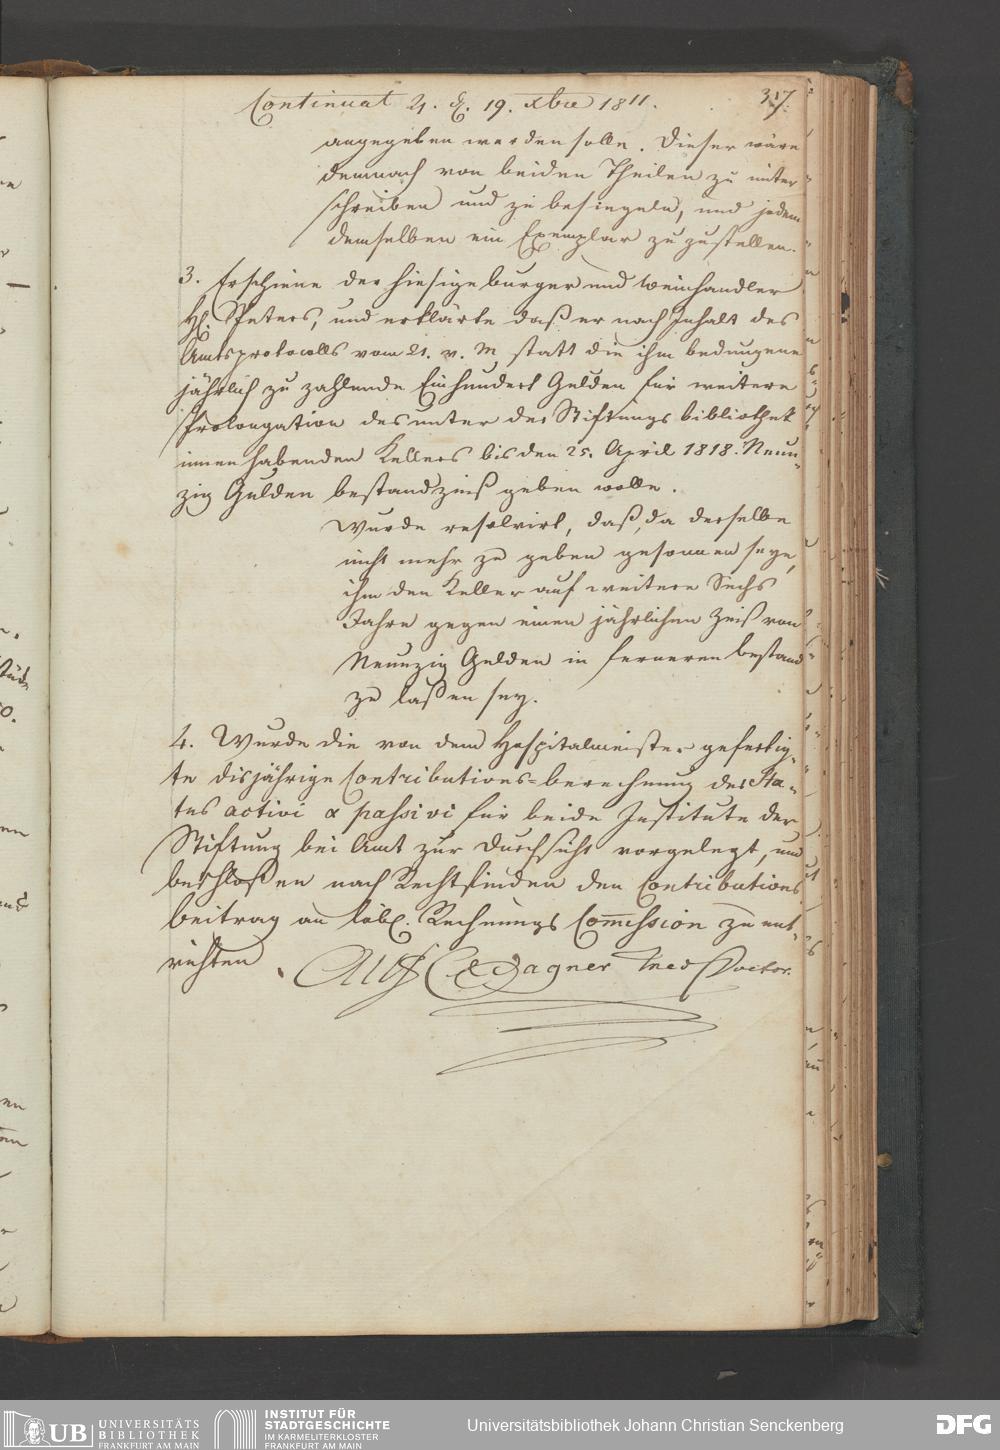 Continuat 4. d. 19. xbre 1811.
317.
angegeben werden solle. Dieser wäre
demnach von beiden Theilen zu unter
schreiben und zu besiegeln, und jedem
demselben ein Exemplar zuzustellen.
3. Erschiene der hiesige burger und Weinhandler
H. Peters, und erklärte daß er nach Inhalt des
Amtsprotocolls vom 21. v. M statt die ihm bedungene
jährlich zu zahlende Einhundert Gulden für weitere
Prolongation des unter der Stiftungs bibliothek
innen habenden Kellers bis den 25. April 1818. Neun-
zig Gulden bestandzinß geben wolle.
Wurde resolvirt, daß, da derselbe
nicht mehr zu geben gesonnen seye,
ihm den Keller auf weitere Sechs
Jahre gegen einen jährlichen Zinß von
Neunzig Gulden in ferneren bestand
zu laßen sey.
4. Wurde die von dem Hospitalmeister gefertig-
te disjährige Contributions-berechnung des Sta-
tus activi & passivi für beide Institute der
Stiftung bei Amt zur Durchsicht vorgelegt, und
beschloßen nach Rechtfinden den Contributions
beitrag an löbl. Rechnungs Comission zu ent-
richten.
Wagner Med Doctor.
UB UNIVERSITÄTS
BIBLIOTHEK
FRANKFURT AM MAIN
INSTITUT FÜR
STADTGESCHICHTE
IM KARMELITERKLOSTER
FRANKFURT AM MAIN
Universitätsbibliothek Johann Christian Senckenberg
DFG